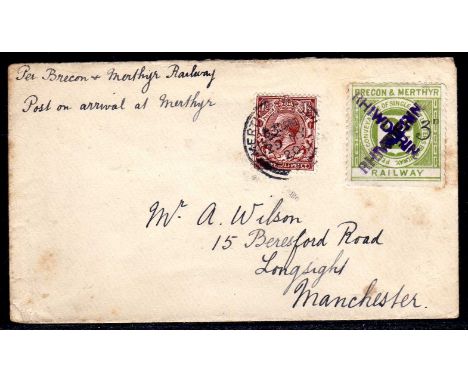 Per Brecon & Merthyr Railway
Post on arrival at Merthyr
BRECON & MERTHYR
RHIWDERIN
3D
RHIWDERIN
RAILWAY
Mr A. Wilson
15 Beresford Road
Longsight
Manchester.